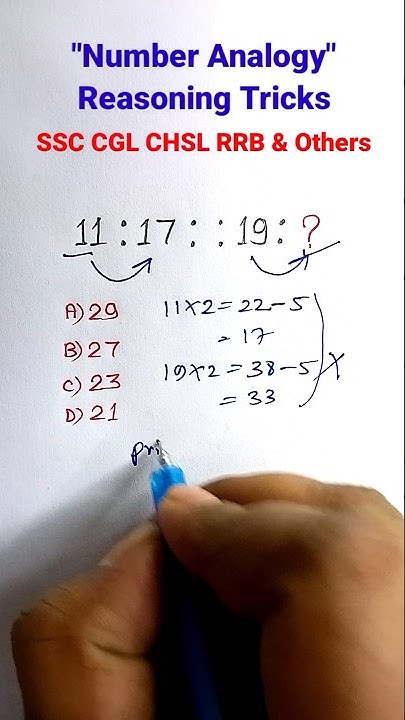 "Number Analogy"
Reasoning Tricks
SSC CGL CHSL RRB & Others
11 : 17 : : 19 : ?
A) 29
B) 27
C) 23
D) 21
11×2 = 22-5
= 17
19×2 = 38-5
= 33
X
pri